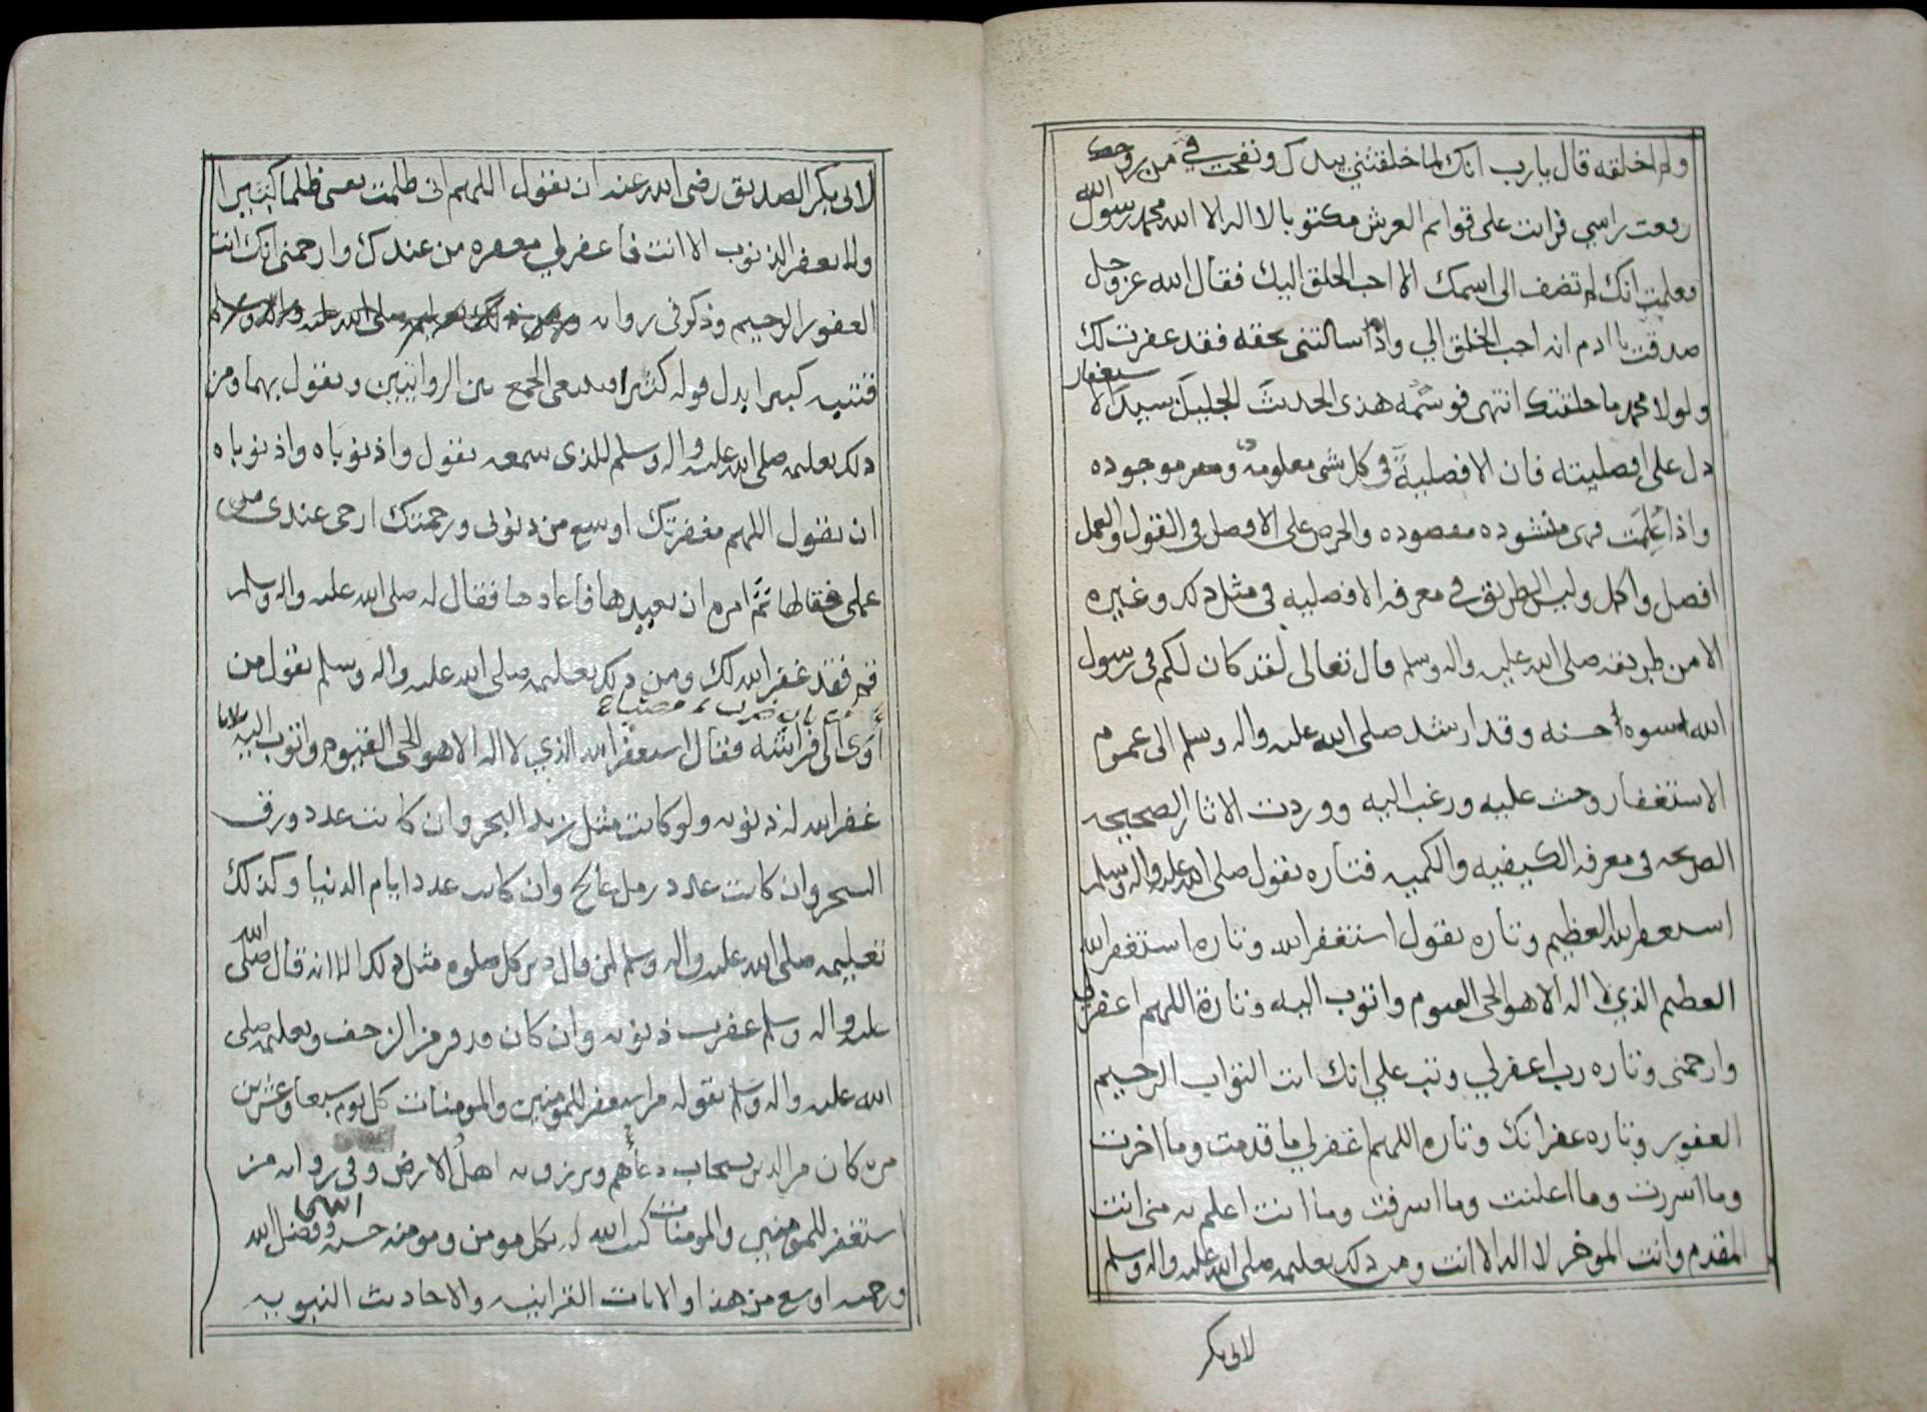 ولم اخلقه قال يارب انك لما خلقتني بيدك ونفخت في من روحك
رفعت راسي فرايت على قوايم العرش مكتوبا لا اله الا الله محمد رسول الله
فعلمت انك لم تضف الى اسمك الا احب الخلق اليك فقال الله عز وجل
صدقت يا ادم انه احب الخلق الي واذا سالتني بحقه فقد غفرت لك
ولولا محمد ما خلقتك انتهى فوسمه هذى الحديث الجليل سيد الاستغفار
دل على افضليته فان الافضلية في كل شي معلومه موجوده
واذا علمت فهى منشوده مقصوده والحرص على الافضل في القول والعمل
افضل واكمل وليس الطريق في معرفه الافضليه في مثل ذلك وغيره
الا من طريقه صلى الله عليه واله وسلم قال تعالى لقد كان لكم في رسول
الله اسوه حسنه وقد ارشد صلى الله عليه واله وسلم الى عموم
الاستغفار وحث عليه ورغب اليه ووردت الاثار الصحيحه
الصريحه في معرفه الكيفيه والكميه فتاره يقول صلى الله عليه واله وسلم
استغفر الله العظيم وتاره يقول استغفر الله وتاره استغفر الله
العظيم الذي لا اله الا هو الحى القيوم واتوب اليه وتارة اللهم اغفر لي
وارحمنى وتاره رب اغفر لي وتب علي انك انت التواب الرحيم
الغفور وتاره غفرانك وتاره اللهم اغفر لي ما قدمت وما اخرت
وما اسررت وما اعلنت وما اسرفت وما انت اعلم به مني انت
المقدم وانت الموخر لا اله الا انت ومن ذلك تعليمه صلى الله عليه واله وسلم
لابى بكر
لابى بكر الصديق رضى الله عنه ان يقول اللهم انى ظلمت نفسى ظلما كثيرا
ولا يغفر الذنوب الا انت فاغفر لي مغفره من عندك وارحمنى انك انت
الغفور الرحيم وذكر فى روايه
كبيرا بدل قوله كثيرا فينبغى الجمع بين الروايتين ويقول بهما ومن
ذلك تعليمه صلى الله عليه واله وسلم للذى سمعه يقول واذنوباه واذنوباه
ان يقول اللهم مغفرتك اوسع من ذنوبى ورحمتك ارجى عندى من
عملى فقالها ثم امره ان يعيدها فاعادها فقال له صلى الله عليه واله وسلم
قم فقد غفر الله لك ومن ذلك تعليمه صلى الله عليه واله وسلم يقول من
باب ضرب مصباح
أوى الى فراشه فقال استغفر الله الذي لا اله الا هو الحى القيوم واتوب اليه ثلاثا
غفر الله له ذنوبه ولو كانت مثل زبد البحر وان كانت عدد ورق
الشجر وان كانت عدد رمل عالج وان كانت عدد ايام الدنيا وكذلك
تعليمه صلى الله عليه واله وسلم لمن قال دبر كل صلوه مثل ذلك الا انه قال صلى الله
عليه واله وسلم غفرت ذنوبه وان كان قد فر من الزحف وتعليمه صلى
الله عليه واله وسلم بقوله من استغفر للمومنين والمومنات كل يوم سبعا وعشرين
مره كان من الذين يستجاب دعاؤهم ويرزق به اهل الارض وفى روايه من
استغفر للمومنين والمومنات كتب الله له بكل مومن ومومنه حسنه وفضل الله
ورحمته اوسع من هذا والايات القرانيه والاحاديث النبويه